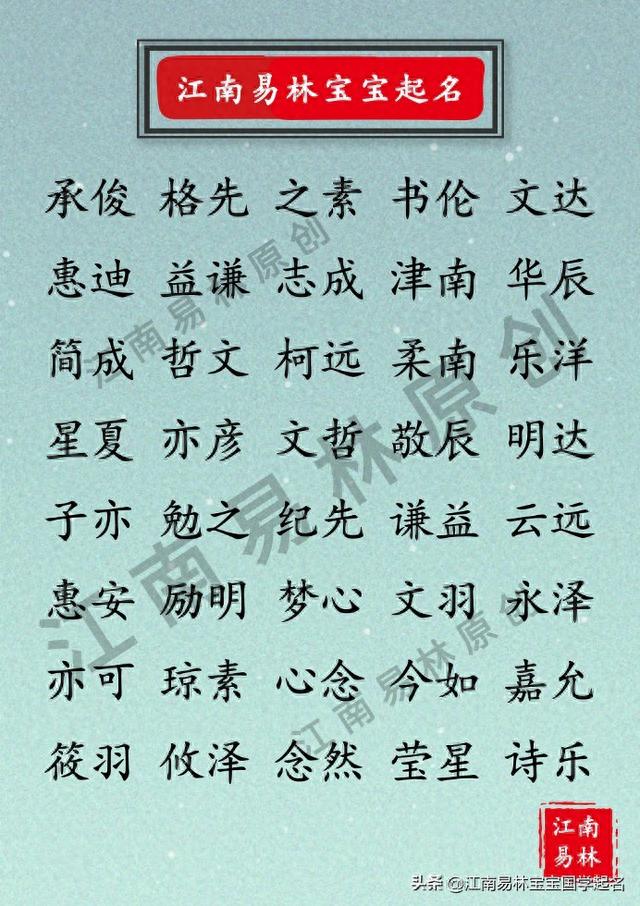 江南易林宝宝起名
承俊 格先 之素 书伦 文达
惠迪 益谦 志成 津南 华辰
简成 哲文 柯远 柔南 乐洋
星夏 亦彦 文哲 敬辰 明达
子亦 勉之 纪先 谦益 云远
惠安 励明 梦心 文羽 永泽
亦可 琼素 心念 今如 嘉允
筱羽 攸泽 念然 莹星 诗乐
江南易林原创
江南易林原创
江南易林原创
江南
易林
头条 @江南易林宝宝国学起名